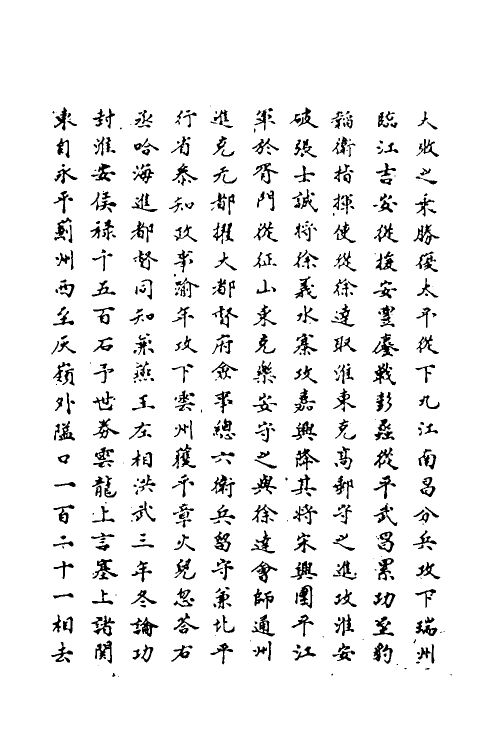 大敗之乘勝復太平從下九江南昌分兵攻下瑞州
臨江吉安從援安豐鏖戰彭蠡從平武昌累功至豹
韜衛指揮使從徐達取淮東克高郵守之進攻淮安
破張士誠將徐義水寨攻嘉興降其將宋興圍平江
軍於胥門從征山東克樂安守之與徐達會師通州
進克元都擢大都督府僉事總六衛兵留守兼北平
行省參知政事踰年攻下雲州獲平章火兒忽荅右
丞哈海進都督同知兼燕王左相洪武三年冬論功
封淮安侯祿千五百石予世券雲龍上言塞上諸關
東自永平薊州西至灰嶺外隘口一百二十一相去